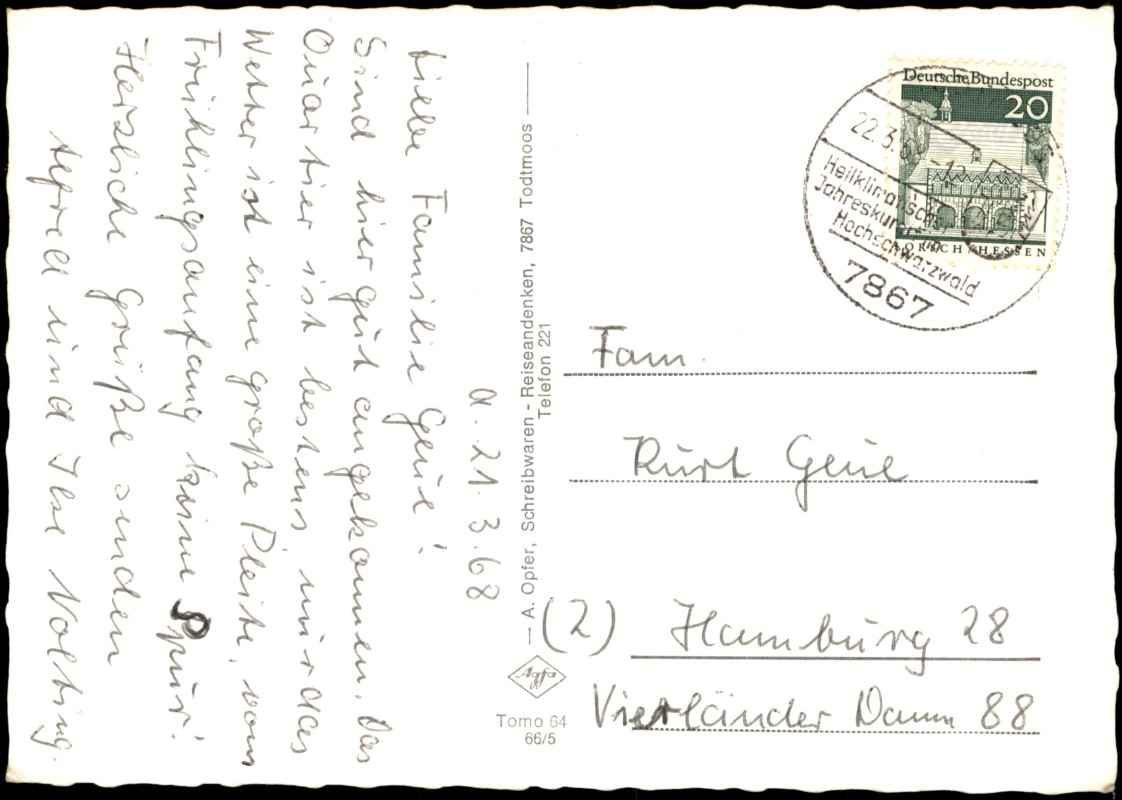 a. 21.3.68
Liebe Familie Geue!
Sind hier gut angekommen. Das
Quartier ist bestens, nur das
Wetter ist eine große Pleite, vom
Frühlingsanfang keine Spur!
Herzliche Grüße senden
Alfred und Ilse Nolting.
A. Opfer, Schreibwaren - Reiseandenken, 7867 Todtmoos
Telefon 221
Agfa
Tomo 64
66/5
Deutsche Bundespost
20
LORSCH/HESSEN
22.3.68
Heilklimatischer
Jahreskurort im
Hochschwarzwald
7867
Fam.
Kurt Geue
(2) Hamburg 28
Vierländer Damm 88